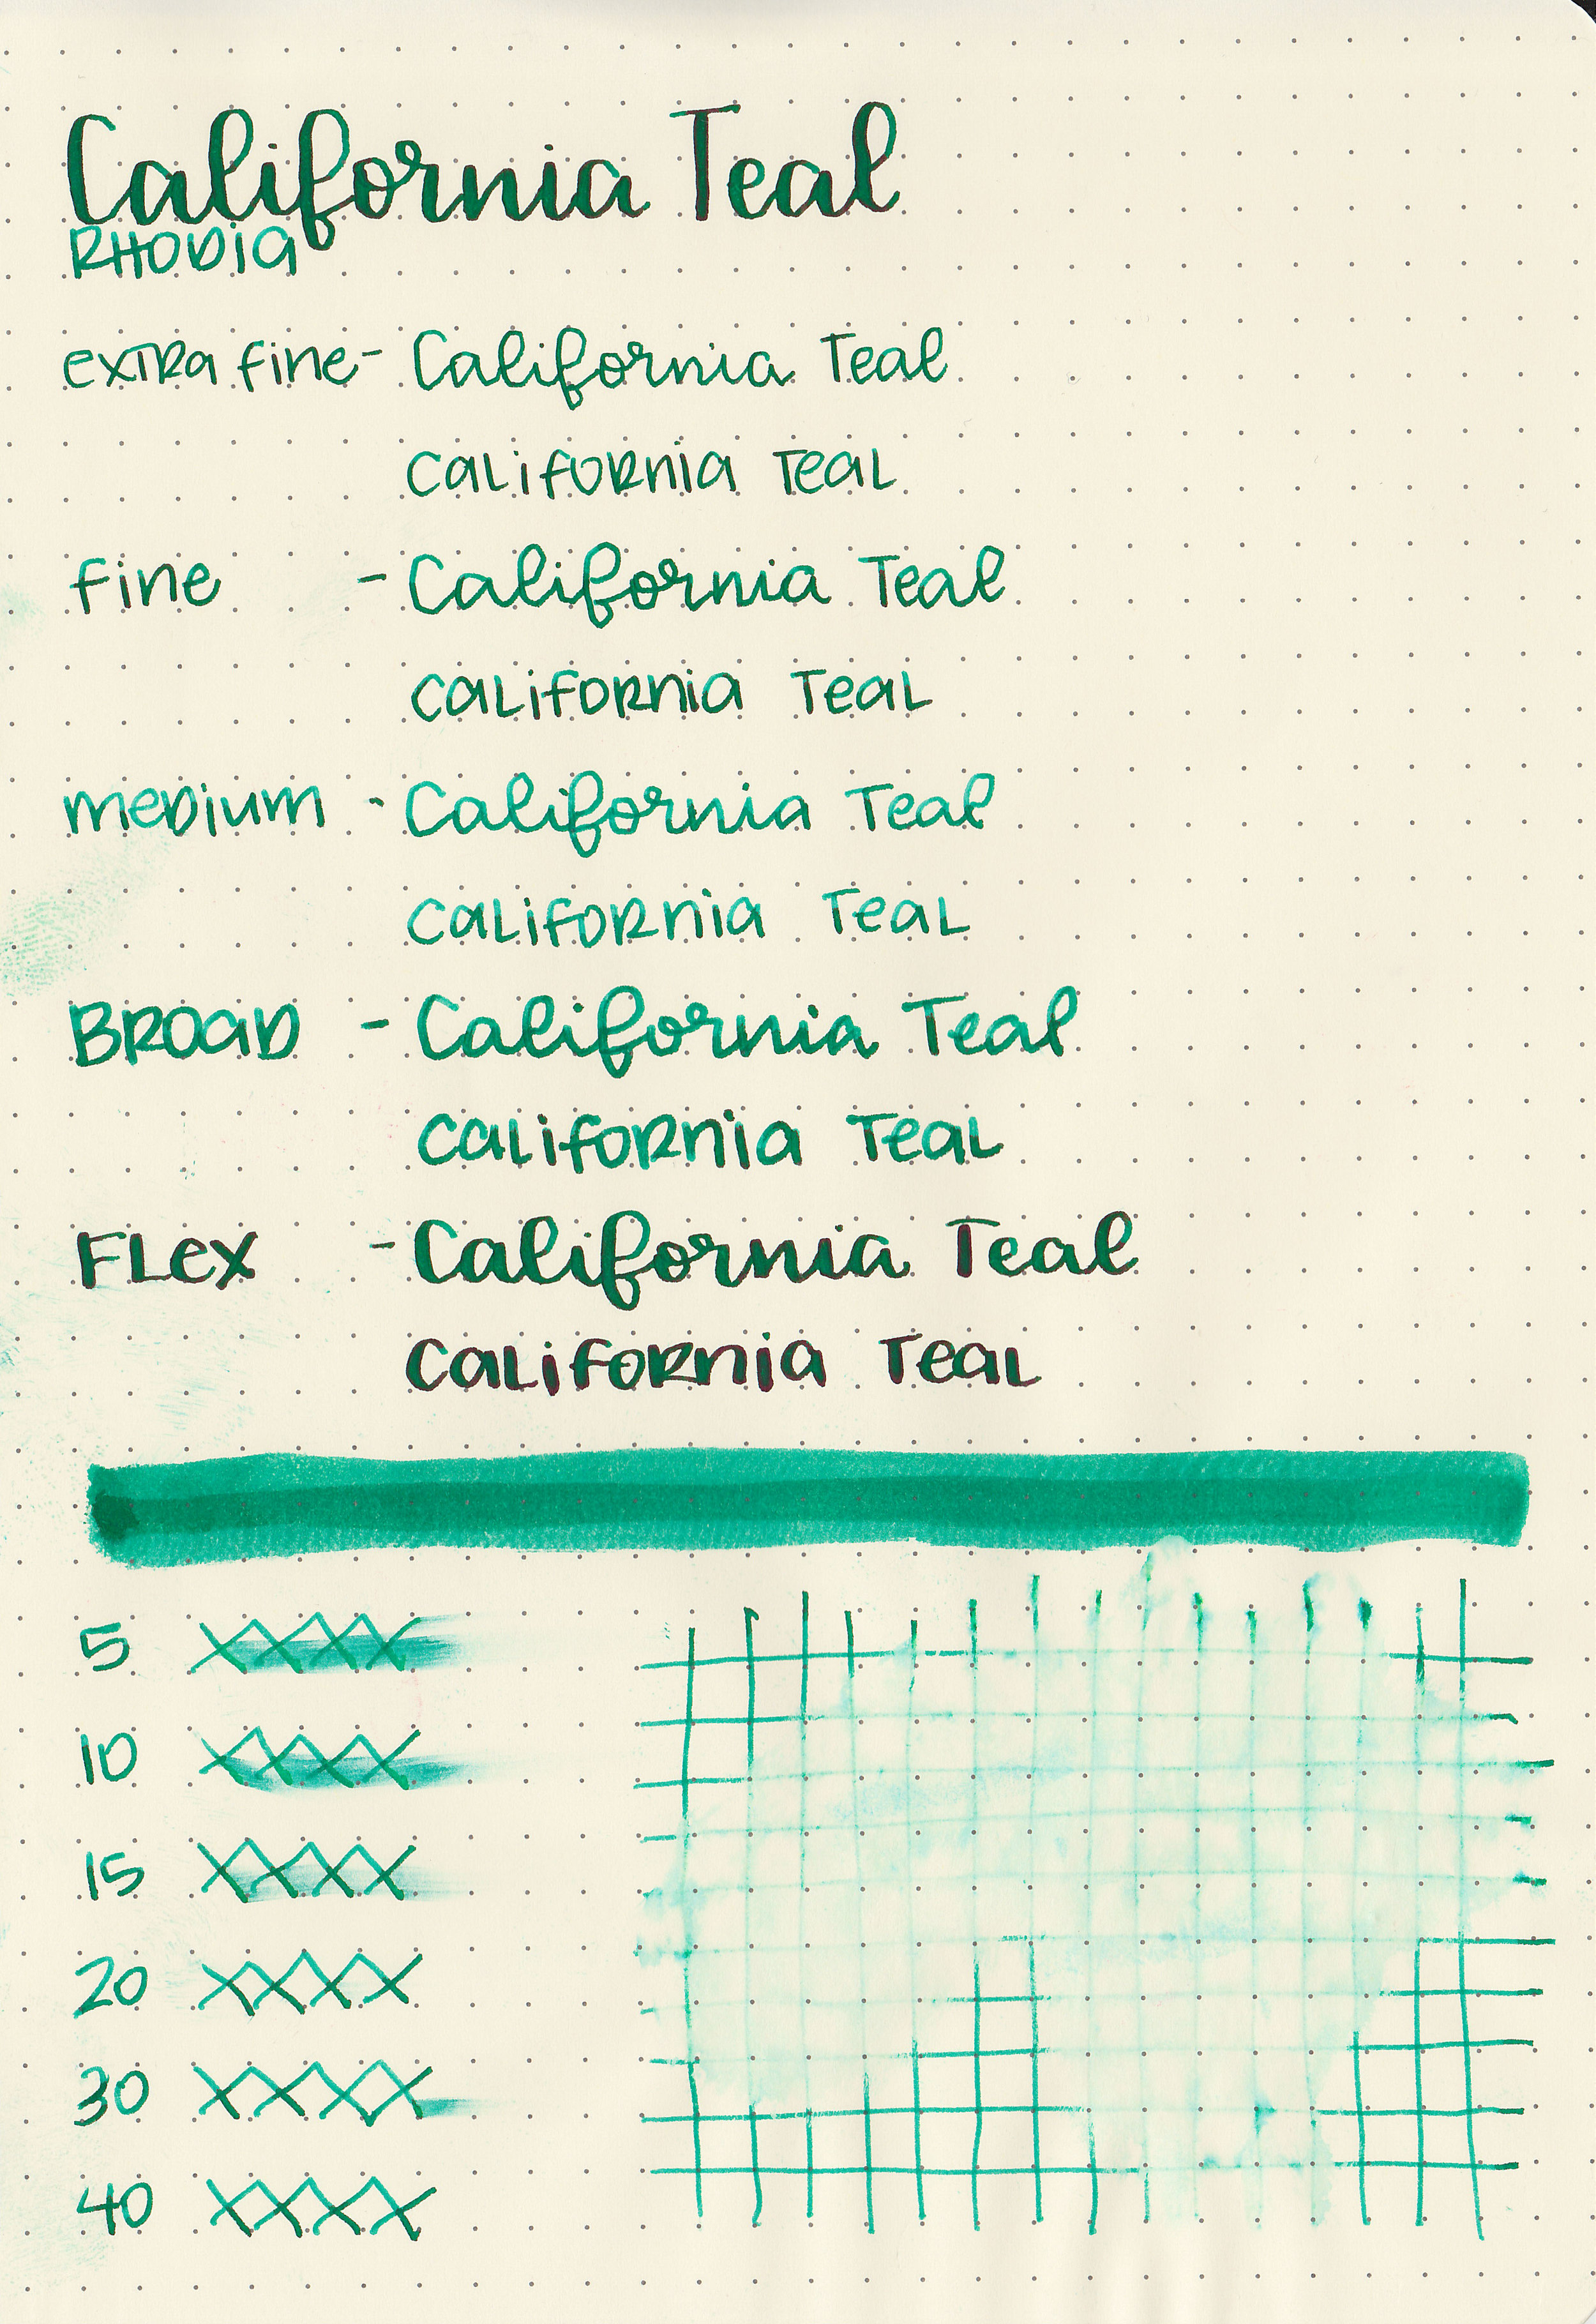 California Teal
RHODIA
extra fine - California Teal
California Teal
fine - California Teal
California Teal
medium - California Teal
California Teal
BROAD - California Teal
California Teal
FLex - California Teal
California Teal
5 XXXX
10 XXXX
15 XXXX
20 XXXX
30 XXXX
40 XXXX